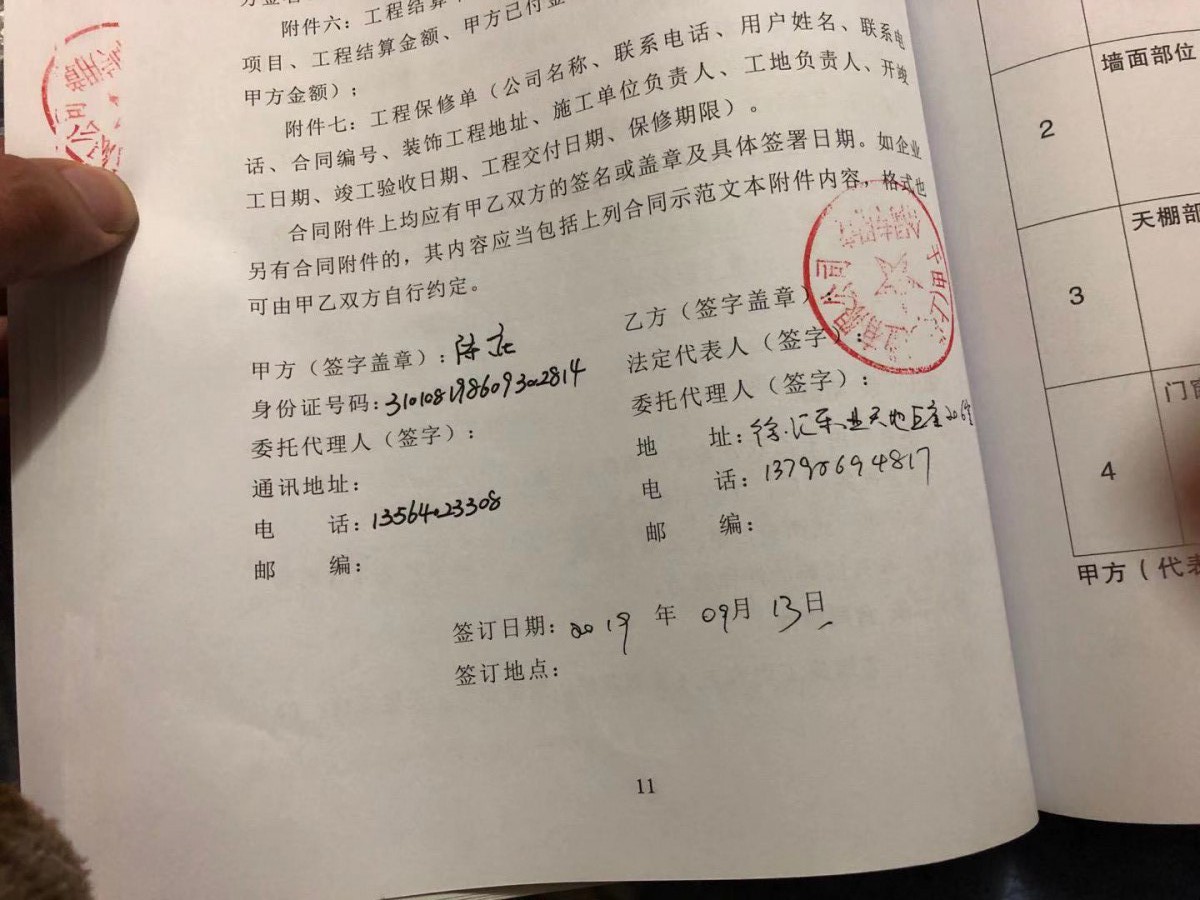 附件六：工程结算
项目、工程结算金额、甲方已付金
甲方金额）；
附件七：工程保修单（公司名称、联系电话、用户姓名、联系电
话、合同编号、装饰工程地址、施工单位负责人、工地负责人、开竣
工日期、竣工验收日期、工程交付日期、保修期限）。
合同附件上均应有甲乙双方的签名或盖章及具体签署日期。如企业
另有合同附件的，其内容应当包括上列合同示范文本附件内容，格式也
可由甲乙双方自行约定。
甲方（签字盖章）：陈
身份证号码：310108198609302814
委托代理人（签字）：
通讯地址：
电 话：13564023308
邮 编：
乙方（签字盖章）：
法定代表人（签字）：
委托代理人（签字）：
地 址：徐汇 天地 206
电 话：13790694817
邮 编：
签订日期：2019 年 09月 13日
签订地点：
11
2
墙面部位
3
天棚部
4
门窗
甲方（代表
有限公司